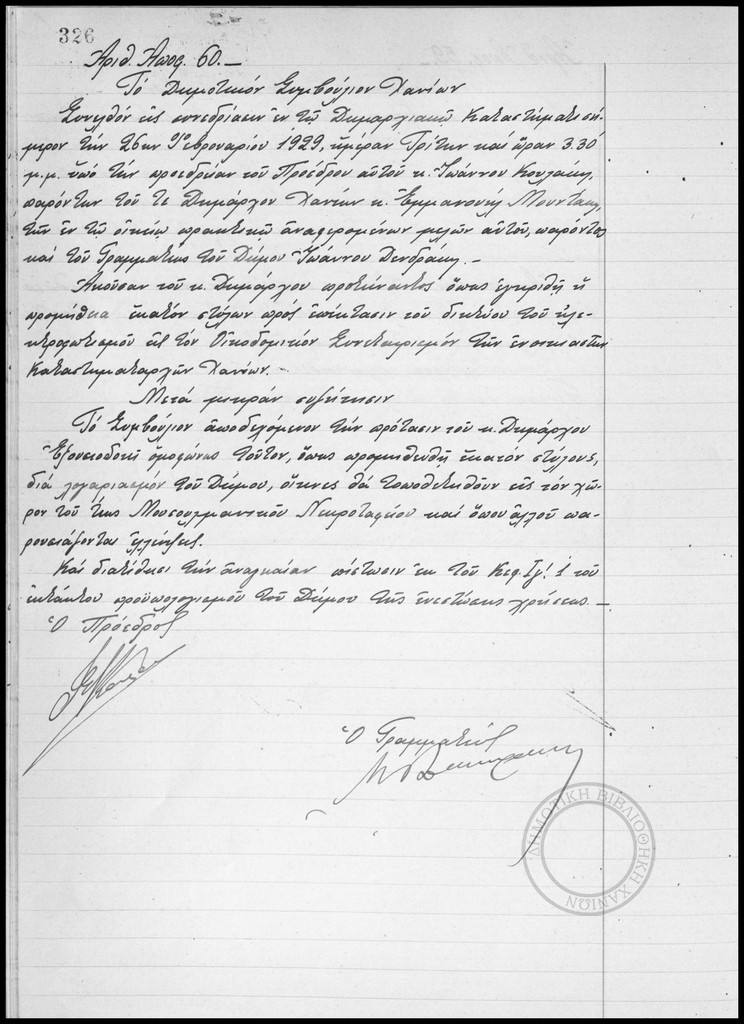 326
Ἀριθ. Ἀποφ. 60.—
Τό Δημοτικόν Συμβούλιον Χανίων
Συνελθόν εἰς συνεδρίασιν ἐν τῷ Δημαρχιακῷ Καταστήματι σή-
μερον τήν 26ην Φεβρουαρίου 1929, ἡμέραν Τρίτην καί ὥραν 3.30΄
μ.μ. ὑπό τήν προεδρίαν τοῦ Προέδρου αὐτοῦ κ. Ἰωάννου
παρόντων τοῦ τε Δημάρχου Χανίων κ. Ἐμμανουήλ Μουντάκη,
τῶν ἐν τῷ οἰκείῳ πρακτικῷ ἀναφερομένων μελῶν αὐτοῦ, παρόντος
καί τοῦ Γραμματέως τοῦ Δήμου Ἰωάννου Δενδράκη.—
Ἀκοῦσαν τοῦ κ. Δημάρχου προτείναντος ὅπως ἐγκριθῇ ἡ
προμήθεια ἑκατόν στύλων πρός ἐπέκτασιν τοῦ δικτύου τοῦ ἠλε-
κτροφωτισμοῦ εἰς τόν Οἰκοδομικόν Συνεταιρισμόν τῶν ἐνοικιαστῶν
Καταστηματαρχῶν Χανίων.—
Μετά μικράν συζήτησιν
Τό Συμβούλιον ἀποδεχόμενον τήν πρότασιν τοῦ κ. Δημάρχου
Ἐξουσιοδοτεῖ ὁμοφώνως τοῦτον, ὅπως προμηθευθῇ ἑκατόν στύλους,
διά λογαριασμόν τοῦ Δήμου, οἵτινες θά τοποθετηθοῦν εἰς τόν χῶ-
ρον τοῦ τέως Μουσουλμανικοῦ Νεκροταφείου καί ὅπου ἀλλοῦ πα-
ρουσιάζονται ἐλλείψεις.
Καί διατίθησι τήν ἀναγκαίαν πίστωσιν ἐκ τοῦ Κεφ. 1 τοῦ
ἐκτάκτου προϋπολογισμοῦ τοῦ Δήμου τῆς ἐνεστώσης χρήσεως.—
Ὁ Πρόεδρος
Ὁ Γραμματεύς
ΔΗΜΟΤΙΚΗ ΒΙΒΛΙΟΘΗΚΗ ΧΑΝΙΩΝ